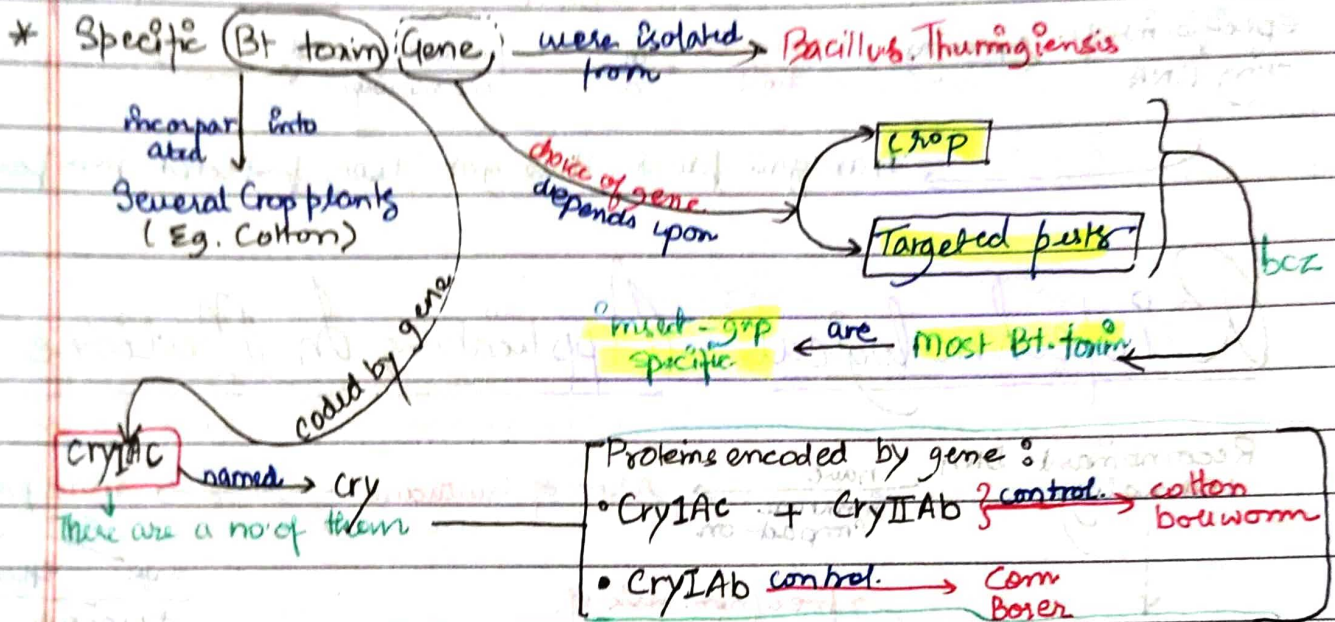 * Specific Bt toxin Gene were isolated from Bacillus. Thuringiensis
incorpar ated into
Several Crop plants
(Eg. Cotton)
choice of gene
depends upon
Crop
Targeted pests
bcz
Most Bt. toxin
are
insect-grp
specific
coded by gene
CryIAc
named
cry
There are a no of them
Proteins encoded by gene :
• CryIAc + CryIIAb } control. cotton
bollworm
• CryIAb control. Corn
Borer